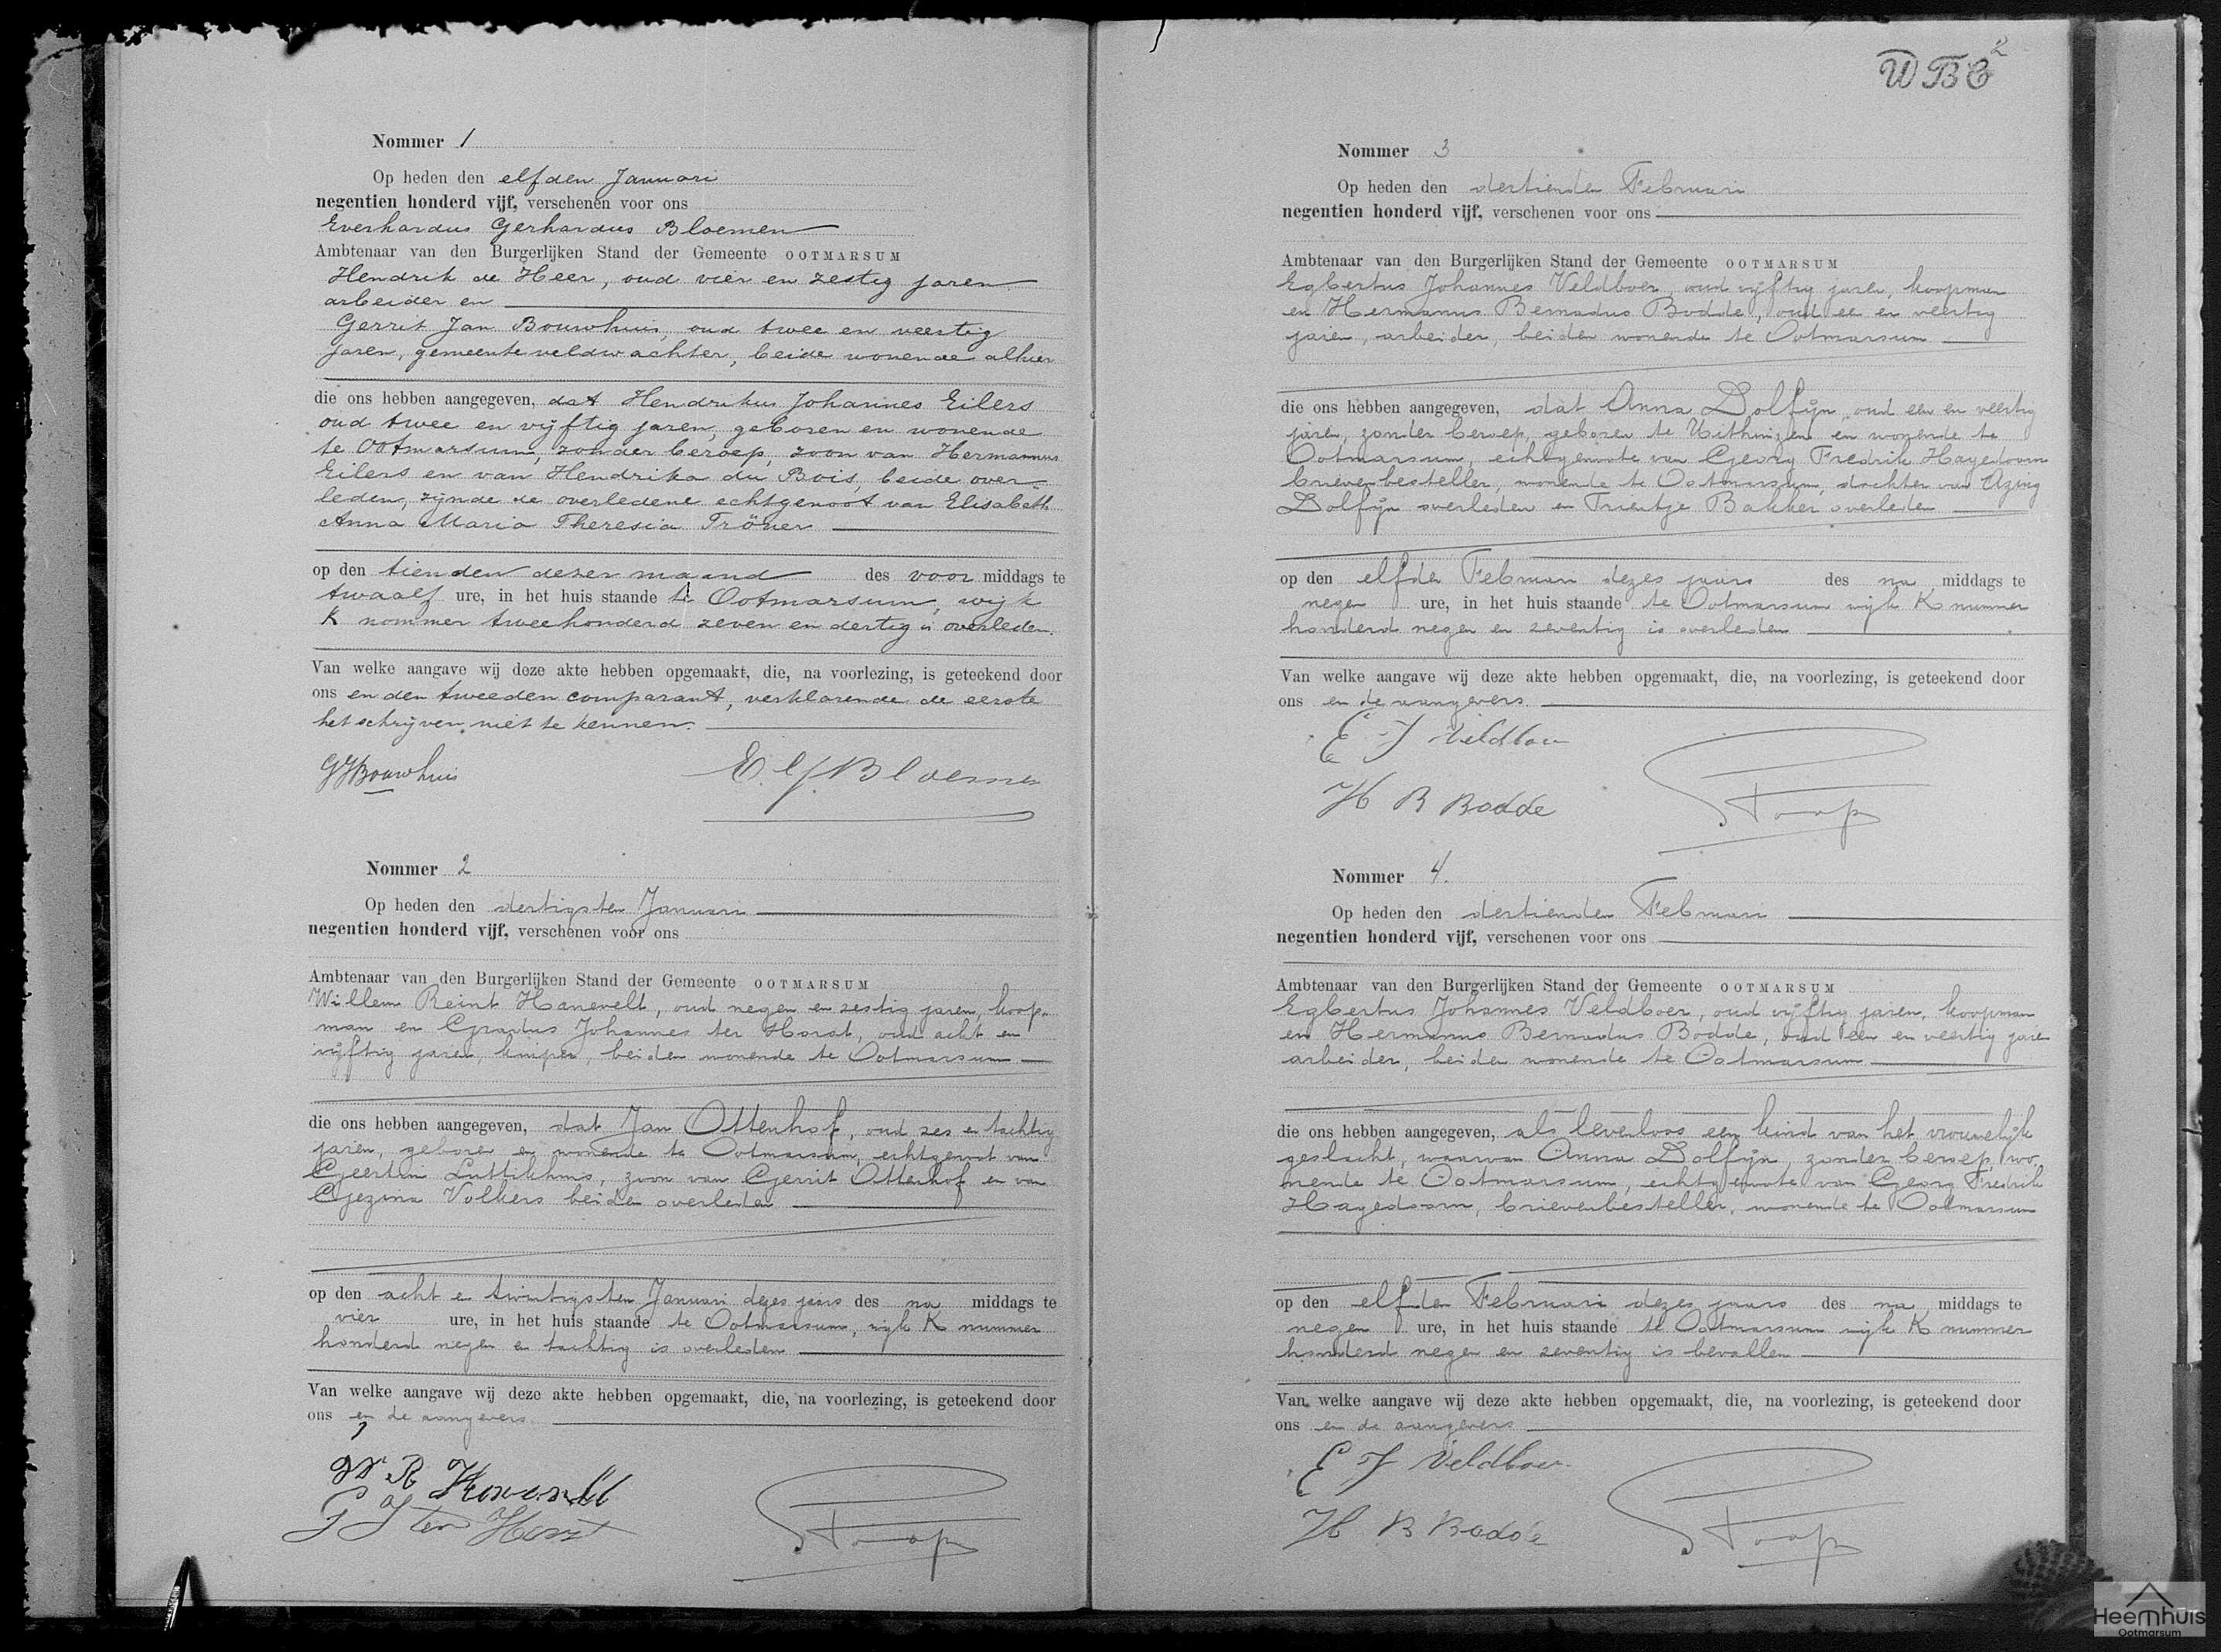 Nommer 1
Op heden den elfden Januari
negentien honderd vijf, verschenen voor ons
Everhardus Gerhardus Bloemen
Ambtenaar van den Burgerlijken Stand der Gemeente OOTMARSUM
Hendrik de Heer, oud vier en zestig jaren
arbeider en
Gerrit Jan Bouwhuis, oud twee en veertig
jaren, gemeenteveldwachter, beide wonende alhier
die ons hebben aangegeven, dat Hendrikus Johannes Eilers
oud twee en vijftig jaren, geboren en wonende
te Ootmarsum, zonder beroep, zoon van Hermannus
Eilers en van Hendrika du Bois, beide over-
leden, zijnde de overledene echtgenoot van Elisabeth
Anna Maria Theresia Tröner
op den tienden dezer maand des voor middags te
twaalf ure, in het huis staande te Ootmarsum, wijk
K nommer tweehonderd zeven en dertig is overleden.
Van welke aangave wij deze akte hebben opgemaakt, die, na voorlezing, is geteekend door
ons en den tweeden comparant, verklarende de eerste
het schrijven niet te kennen.
GJBouwhuis E.G.Bloemen
Nommer 2
Op heden den dertigsten Januari
negentien honderd vijf, verschenen voor ons
Ambtenaar van den Burgerlijken Stand der Gemeente OOTMARSUM
Willem Reint Hanevelt, oud negen en zestig jaren, koop-
man en Gradus Johannes ter Horst, oud acht en
vijftig jaren, kuiper, beiden wonende te Ootmarsum
die ons hebben aangegeven, dat Jan Ottenhof, oud zes en tachtig
jaren, geboren en wonende te Ootmarsum, echtgenoot van
Geertrui Luttikhuis, zoon van Gerrit Ottenhof en van
Gezina Volkers beiden overleden
op den acht en twintigsten Januari dezes jaars des na middags te
vier ure, in het huis staande te Ootmarsum, wijk K nummer
honderd negen en tachtig is overleden
Van welke aangave wij deze akte hebben opgemaakt, die, na voorlezing, is geteekend door
ons en de aangevers.
W R Hanevelt
G J ter Horst
2
WBC
Nommer 3
Op heden den dertienden Februari
negentien honderd vijf, verschenen voor ons
Ambtenaar van den Burgerlijken Stand der Gemeente OOTMARSUM
Egbertus Johannes Veldboer, oud vijftig jaren, koopman
en Hermannus Bernadus Bodde, oud een en veertig
jaren, arbeider, beiden wonende te Ootmarsum
die ons hebben aangegeven, dat Anna Dolfijn, oud een en veertig
jaren, zonder beroep, geboren te Uithuizen en wonende te
Ootmarsum, echtgenoote van Georg Fredrik Hagedoorn
brievenbesteller, wonende te Ootmarsum, dochter van
Dolfijn overleden en Trientje Bakker overleden
op den elfden Februari dezes jaars des na middags te
negen ure, in het huis staande te Ootmarsum wijk K nummer
honderd negen en zeventig is overleden
Van welke aangave wij deze akte hebben opgemaakt, die, na voorlezing, is geteekend door
ons en de aangevers.
E J Veldboer
H B Bodde
Nommer 4.
Op heden den dertienden Februari
negentien honderd vijf, verschenen voor ons
Ambtenaar van den Burgerlijken Stand der Gemeente OOTMARSUM
Egbertus Johannes Veldboer, oud vijftig jaren, koopman
en Hermannus Bernadus Bodde, oud een en veertig jaren
arbeider, beiden wonende te Ootmarsum
die ons hebben aangegeven, als levenloos een kind van het vrouwelijk
geslacht, waarvan Anna Dolfijn, zonder beroep, wo-
nende te Ootmarsum, echtgenoote van Georg Fredrik
Hagedoorn, brievenbesteller, wonende te Ootmarsum
op den elfden Februari dezes jaars des na middags te
negen ure, in het huis staande te Ootmarsum wijk K nummer
honderd negen en zeventig is bevallen
Van welke aangave wij deze akte hebben opgemaakt, die, na voorlezing, is geteekend door
ons en de aangevers
E J Veldboer
H B Bodde
Heemhuis
Ootmarsum